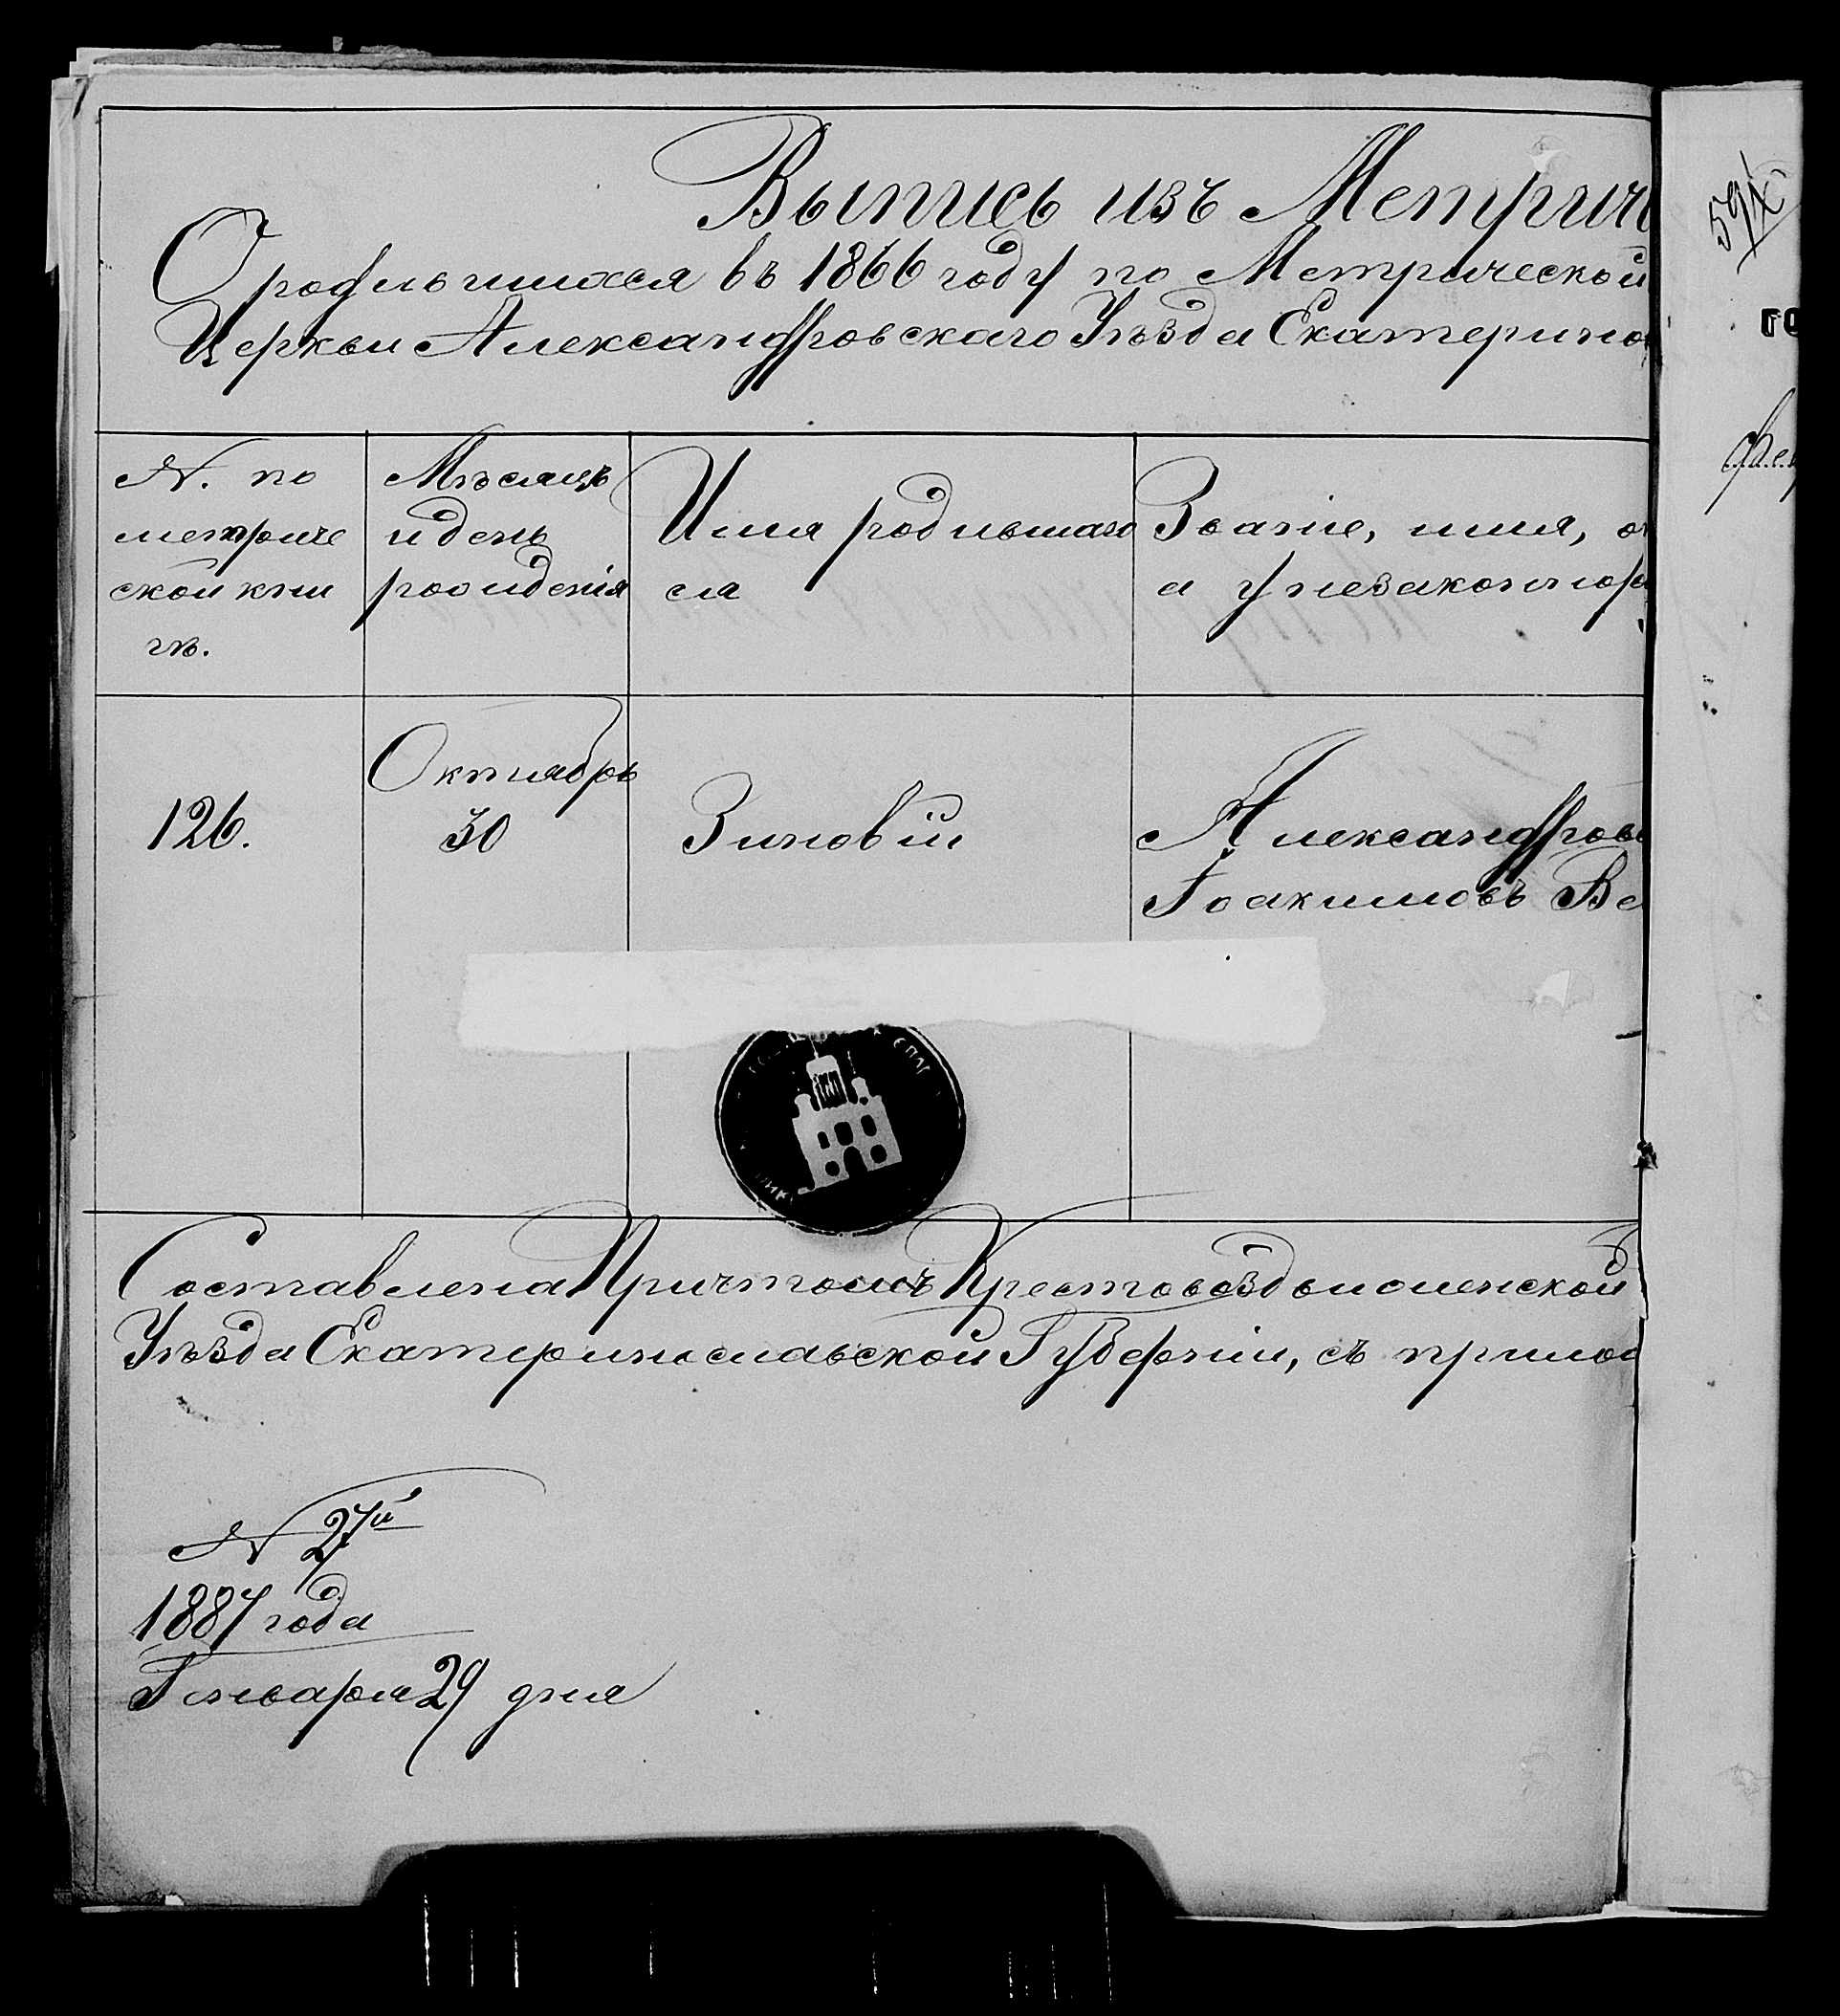 Выпись изъ Метрич
О родившихся въ 1866 году по Метрической
Церкви Александровскаго Уѣзда Екатерино
N. по
метриче
ской кни
гѣ.
Мѣсяцъ
и день
рождения
Имя родившаго
ся
Званіе, имя, о
а у незаконнор
126.
Октябрь
30
Зиновій
Александров
Іоакимовъ Ва
Составлена Причтомъ Крестовоздвиженской
Уѣзда Екатеринославской Губерніи, съ прилож
N 27й
1887 года
Генваря 29 дня
59
го
Фев